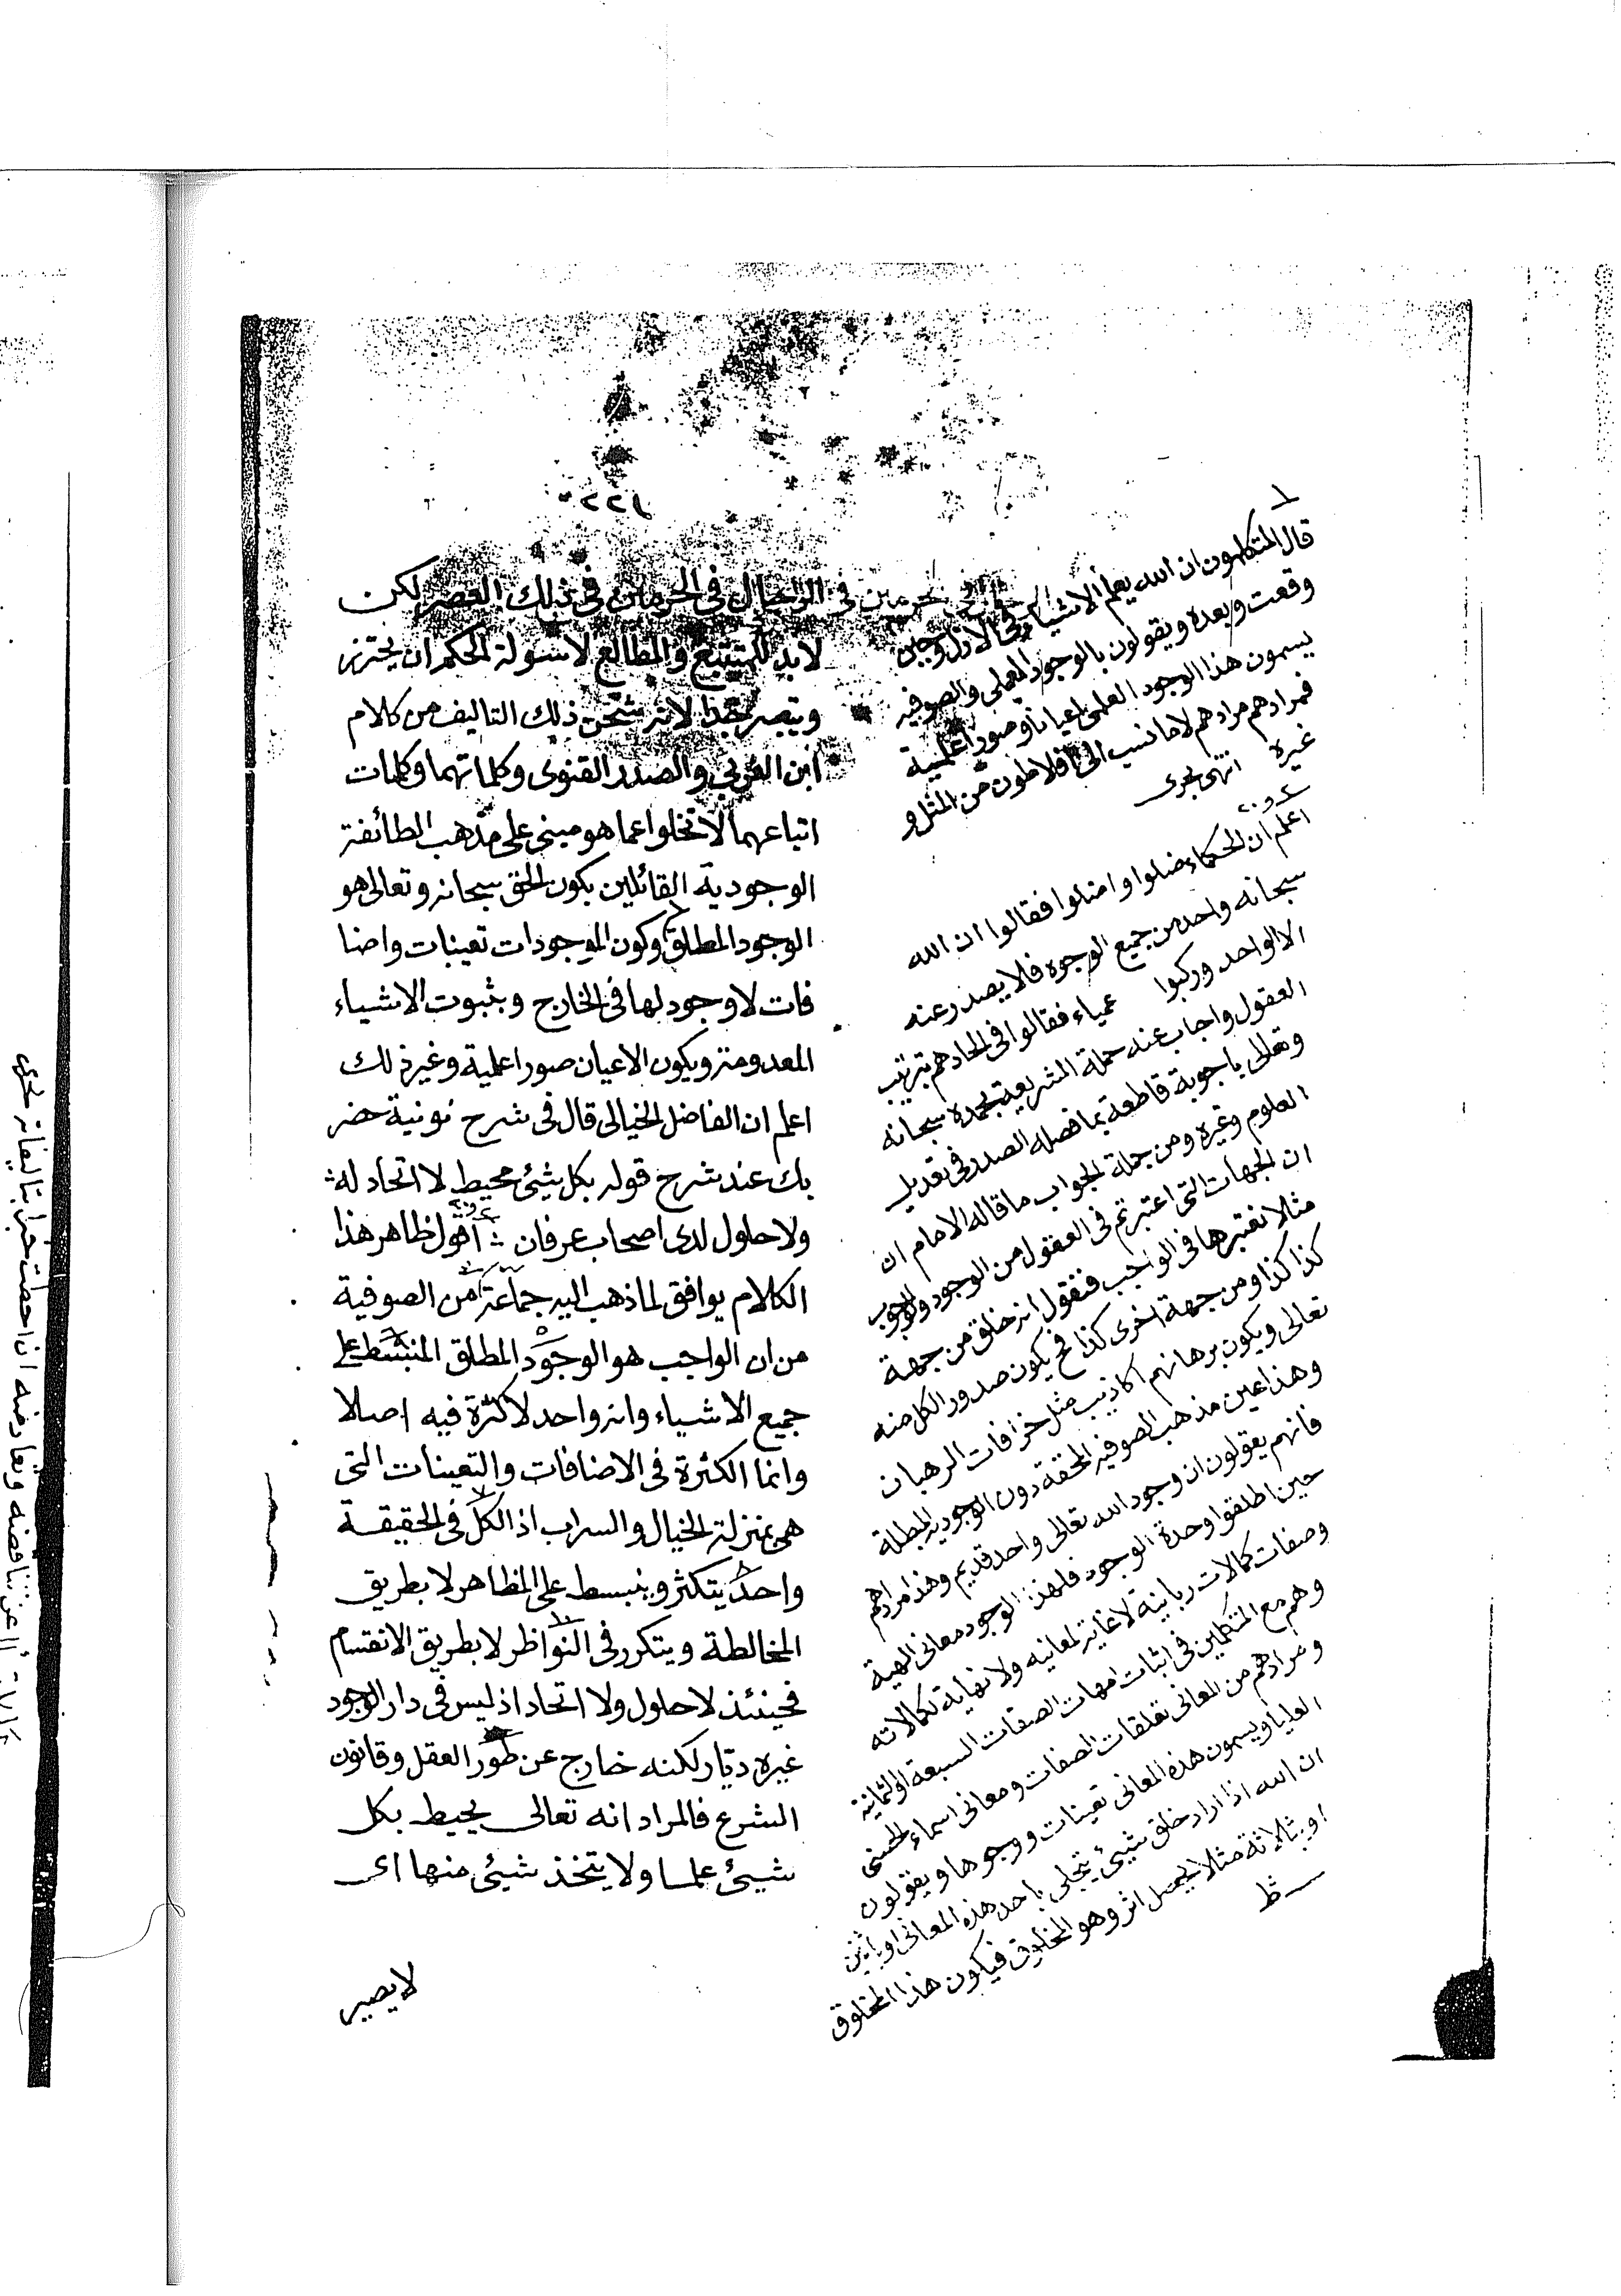 ٢٢١
في الحرمين في ذلك العصر لكن
لابد للمتتبع والمطالع لاسولة الحكم ان يحترز
ويتبصر جدا لانه شحن ذلك التاليف من كلام
ابن العربي والصدر القنوى وكلماتهما وكلمات
اتباعهما لا تخلوا عما هو مبنى على مذهب الطائفة
الوجودية القائلين بكون الحق سبحانه وتعالى هو
الوجود المطلق وكون الموجودات تعينات واضا
فات لا وجود لها فى الخارج وبثبوت الاشياء
المعدومة وبكون الاعيان صورا علمية وغير ذلك
اعلم ان الفاضل الخيالى قال فى شرح نونية خضر
بك عند شرح قوله بكل شيئ محيط لا اتحاد له
ولا حلول لدى اصحاب عرفان اقول ظاهر هذا
الكلام يوافق لما ذهب اليه جماعة من الصوفية
من ان الواجب هو الوجود المطلق المنبسط على
جميع الاشياء وانه واحد لا كثرة فيه اصلا
وانما الكثرة فى الاضافات والتعينات التى
هى بمنزلة الخيال والسراب اذ الكل فى الحقيقة
واحد يتكثر وينبسط على المظاهر لا بطريق
المخالطة ويتكرر فى النواظر لا بطريق الانقسام
فحينئذ لا حلول ولا اتحاد اذ ليس فى دار الوجود
غيره ديار لكنه خارج عن طور العقل وقانون
الشرع فالمراد انه تعالى يحيط بكل
شيئ علما ولا يتخذ شيئ منها اى
لا يصير
قال المتكلمون ان الله يعلم الاشياء فى الازل وحين
وقعت وبعده ويقولون بالوجود العلمى والصوفيه
يسمون هذا الوجود العلمى اعيانا وصورا علمية
فمرادهم مرادهم لا ما نسب الى افلاطون من المثل و
غيره انتهى
اعلم ان الحكماء ضلوا واضلوا فقالوا ان الله
سبحانه واحد من جميع الوجوه فلا يصدر عنه
الا الواحد وركبوا عمياء فقالوا فى الحادهم بترتيب
العقول واجاب عنه حملة الشريعة بحمده سبحانه
وتعالى باجوبة قاطعة بما فصله الصدر فى تعديل
العلوم وغيره ومن جملة الجواب ما قاله الامام ان
ان الجهات التى اعتبرتم فى العقول من الوجود والوجوب
مثلا نعتبرها فى الواجب فنقول انه خلق من جهة
كذا كذا ومن جهة اخرى كذا فح يكون صدور الكل منه
تعالى ويكون برهانهم اكاذيب مثل خرافات الرهبان
وهذا عين مذهب الصوفيه المحققة دون الوجوديه المبطلة
فانهم يقولون ان وجود الله تعالى واحد قديم وهذا مرادهم
حين اطلقوا وحدة الوجود فلهذا الوجود معانى الهية
وصفات كمالات ربانية لا غاية لمعانيه ولا نهاية لكمالاته
وهم مع المتكلمين فى اثبات امهات الصفات السبعة او الثمانية
ومرادهم من المعانى تعلقات الصفات ومعانى اسماء الحسنى
العليا ويسمون هذه المعانى تعينات ووجوها ويقولون
ان الله اذا اراد خلق شيئ يتجلى باحد هذه المعانى او باثنين
او بثلاثة مثلا ليحصل اثر وهو المخلوق فيكون هذا المخلوق